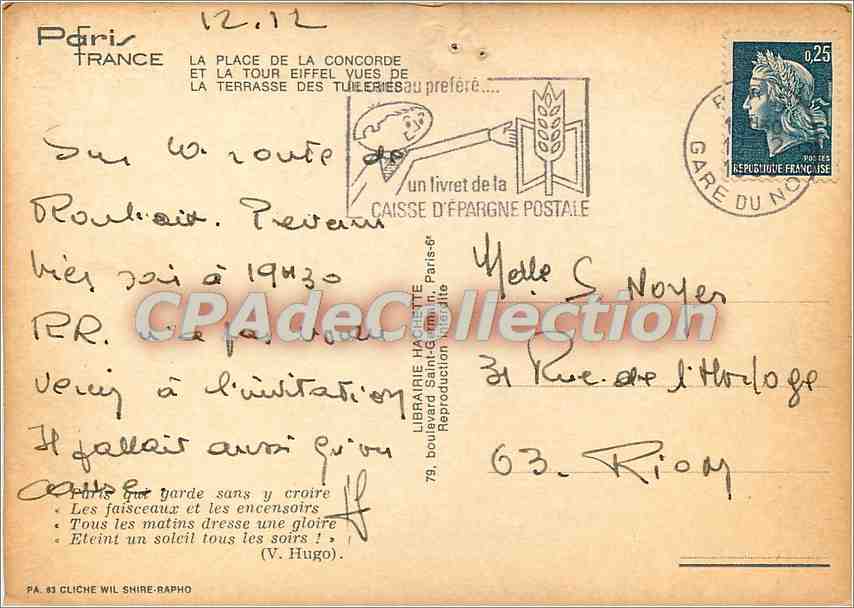 12.12
Paris
FRANCE
LA PLACE DE LA CONCORDE
ET LA TOUR EIFFEL VUES DE
LA TERRASSE DES TUILERIES
au preféré....
un livret de la
CAISSE D'ÉPARGNE POSTALE
0,25
POSTES
REPUBLIQUE FRANÇAISE
GARE DU NO
Sur la route de
Roubaix. Revenu
hier soir à 19H30
RR. n'a pas voulu
venir à l'invitation
Il fallait aussi qu'on
cause.
CPAdeCollection
LIBRAIRIE HACHETTE
79, boulevard Saint-Germain, Paris-6e
Reproduction interdite
Melle S Noyer
31 Rue de l'Horloge
63. Riom
« Paris qui garde sans y croire
« Les faisceaux et les encensoirs
« Tous les matins dresse une gloire
« Eteint un soleil tous les soirs ! »
(V. Hugo).
PA. 83 CLICHE WIL SHIRE-RAPHO